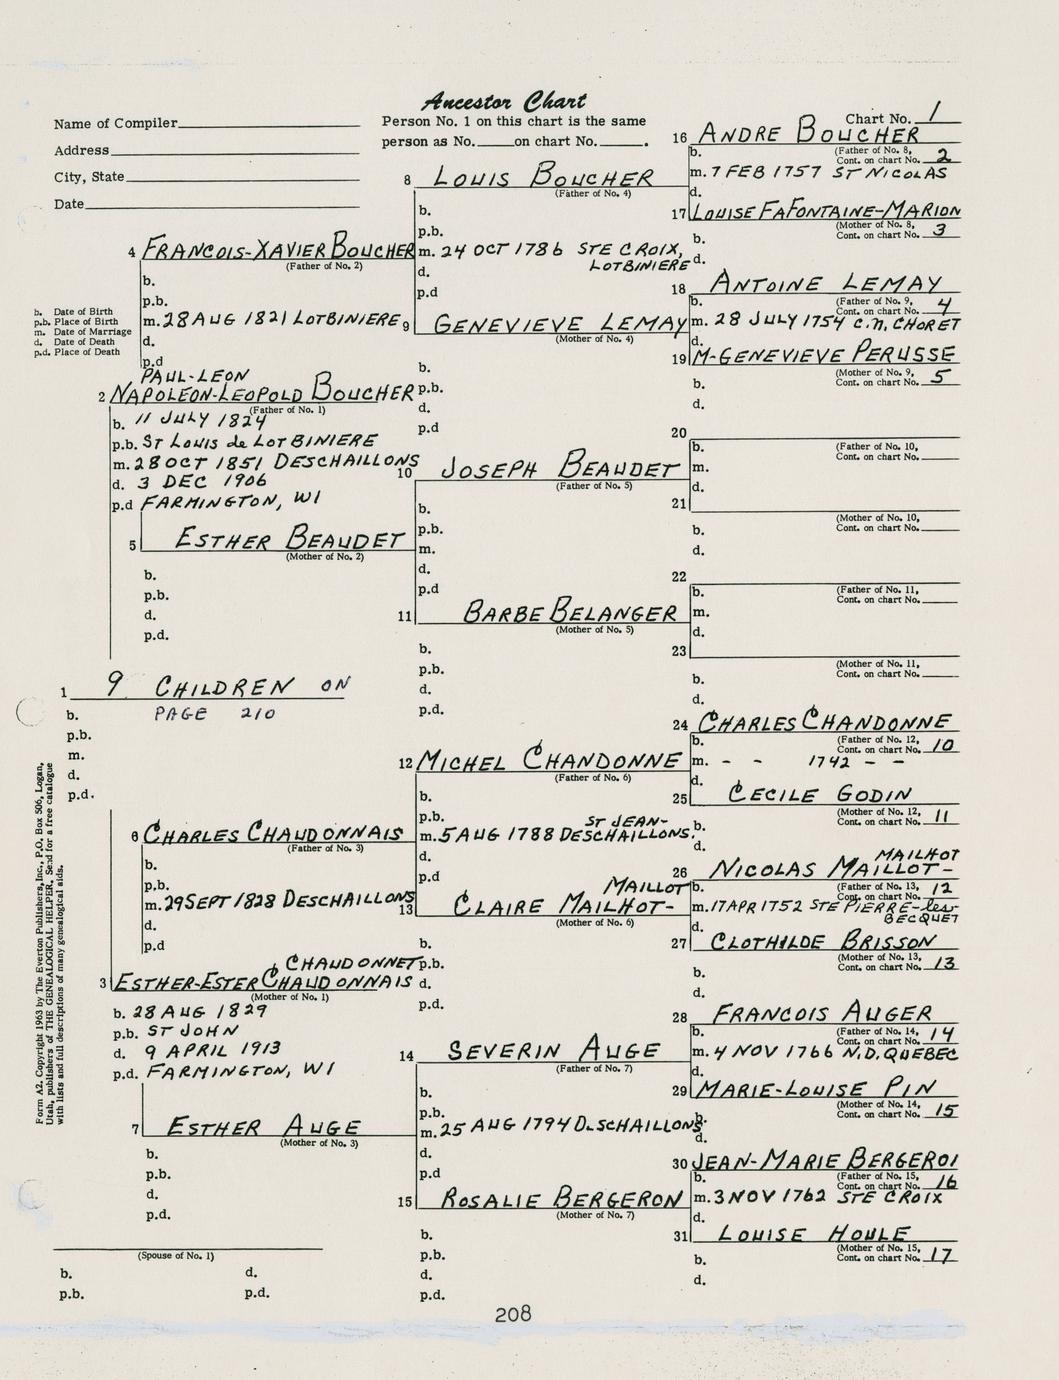 Ancestor Chart
Name of Compiler
Address
City, State
Date
Person No. 1 on this chart is the same
person as No. on chart No. .
Chart No. 1
16 ANDRE BOUCHER
b. (Father of No. 8,
Cont. on chart No. 2
m. 7 FEB 1757 ST NICOLAS
d.
8 LOUIS BOUCHER
(Father of No. 4)
b.
p.b.
m. 24 OCT 1786 STE CROIX,
LOTBINIERE
d.
p.d
17 LOUISE FAFONTAINE-MARION
(Mother of No. 8,
Cont. on chart No. 3
b.
d.
4 FRANCOIS-XAVIER BOUCHER
(Father of No. 2)
b.
p.b.
m. 28 AUG 1821 LOTBINIERE
d.
p.d
18 ANTOINE LEMAY
b. (Father of No. 9,
Cont. on chart No. 4
m. 28 JULY 1754 C.N. CHORET
d.
b. Date of Birth
p.b. Place of Birth
m. Date of Marriage
d. Date of Death
p.d. Place of Death
9 GENEVIEVE LEMAY
(Mother of No. 4)
b.
p.b.
d.
p.d
19 M-GENEVIEVE PERUSSE
(Mother of No. 9,
Cont. on chart No. 5
b.
d.
PAUL-LEON
2 NAPOLEON-LEOPOLD BOUCHER
(Father of No. 1)
b. 11 JULY 1824
p.b. ST LOUIS de LOTBINIERE
m. 28 OCT 1851 DESCHAILLONS
d. 3 DEC 1906
p.d FARMINGTON, WI
20
b. (Father of No. 10,
Cont. on chart No.
m.
d.
10 JOSEPH BEAUDET
(Father of No. 5)
b.
p.b.
m.
d.
p.d
21
(Mother of No. 10,
Cont. on chart No.
b.
d.
5 ESTHER BEAUDET
(Mother of No. 2)
b.
p.b.
d.
p.d.
22
b. (Father of No. 11,
Cont. on chart No.
m.
d.
11 BARBE BELANGER
(Mother of No. 5)
b.
p.b.
d.
p.d.
23
(Mother of No. 11,
Cont. on chart No.
b.
d.
1 9 CHILDREN ON
PAGE 210
b.
p.b.
m.
d.
p.d.
24 CHARLES CHANDONNE
b. (Father of No. 12,
Cont. on chart No. 10
m. - - 1742 - -
d.
12 MICHEL CHANDONNE
(Father of No. 6)
b.
p.b. ST JEAN-
m. 5 AUG 1788 DESCHAILLONS.
d.
p.d
25 CECILE GODIN
(Mother of No. 12,
Cont. on chart No. 11
b.
d.
6 CHARLES CHAUDONNAIS
(Father of No. 3)
b.
p.b.
m. 29 SEPT 1828 DESCHAILLONS
d.
p.d
MAILHOT
26 NICOLAS MAILLOT-
b. (Father of No. 13,
Cont. on chart No. 12
m. 17 APR 1752 STE PIERRE-les-
BECQUET
d.
MAILLOT
13 CLAIRE MAILHOT-
(Mother of No. 6)
b.
p.b.
d.
p.d.
27 CLOTHILDE BRISSON
(Mother of No. 13,
Cont. on chart No. 13
b.
d.
CHAUDONNET
3 ESTHER-ESTER CHAUDONNAIS
(Mother of No. 1)
b. 28 AUG 1829
p.b. ST JOHN
d. 9 APRIL 1913
p.d. FARMINGTON, WI
28 FRANCOIS AUGER
b. (Father of No. 14,
Cont. on chart No. 14
m. 4 NOV 1766 N.D. QUEBEC
d.
14 SEVERIN AUGE
(Father of No. 7)
b.
p.b.
m. 25 AUG 1794 DESCHAILLONS.
d.
p.d
29 MARIE-LOUISE PIN
(Mother of No. 14,
Cont. on chart No. 15
b.
d.
7 ESTHER AUGE
(Mother of No. 3)
b.
p.b.
d.
p.d.
30 JEAN-MARIE BERGEROI
b. (Father of No. 15,
Cont. on chart No. 16
m. 3 NOV 1762 STE CROIX
d.
15 ROSALIE BERGERON
(Mother of No. 7)
b.
p.b.
d.
p.d.
31 LOUISE HOULE
(Mother of No. 15,
Cont. on chart No. 17
b.
d.
(Spouse of No. 1)
b. d.
p.b. p.d.
Form A2. Copyright 1963 by The Everton Publishers, Inc., P.O. Box 506, Logan,
Utah, publishers of THE GENEALOGICAL HELPER. Send for a free catalogue
with lists and full descriptions of many genealogical aids.
208